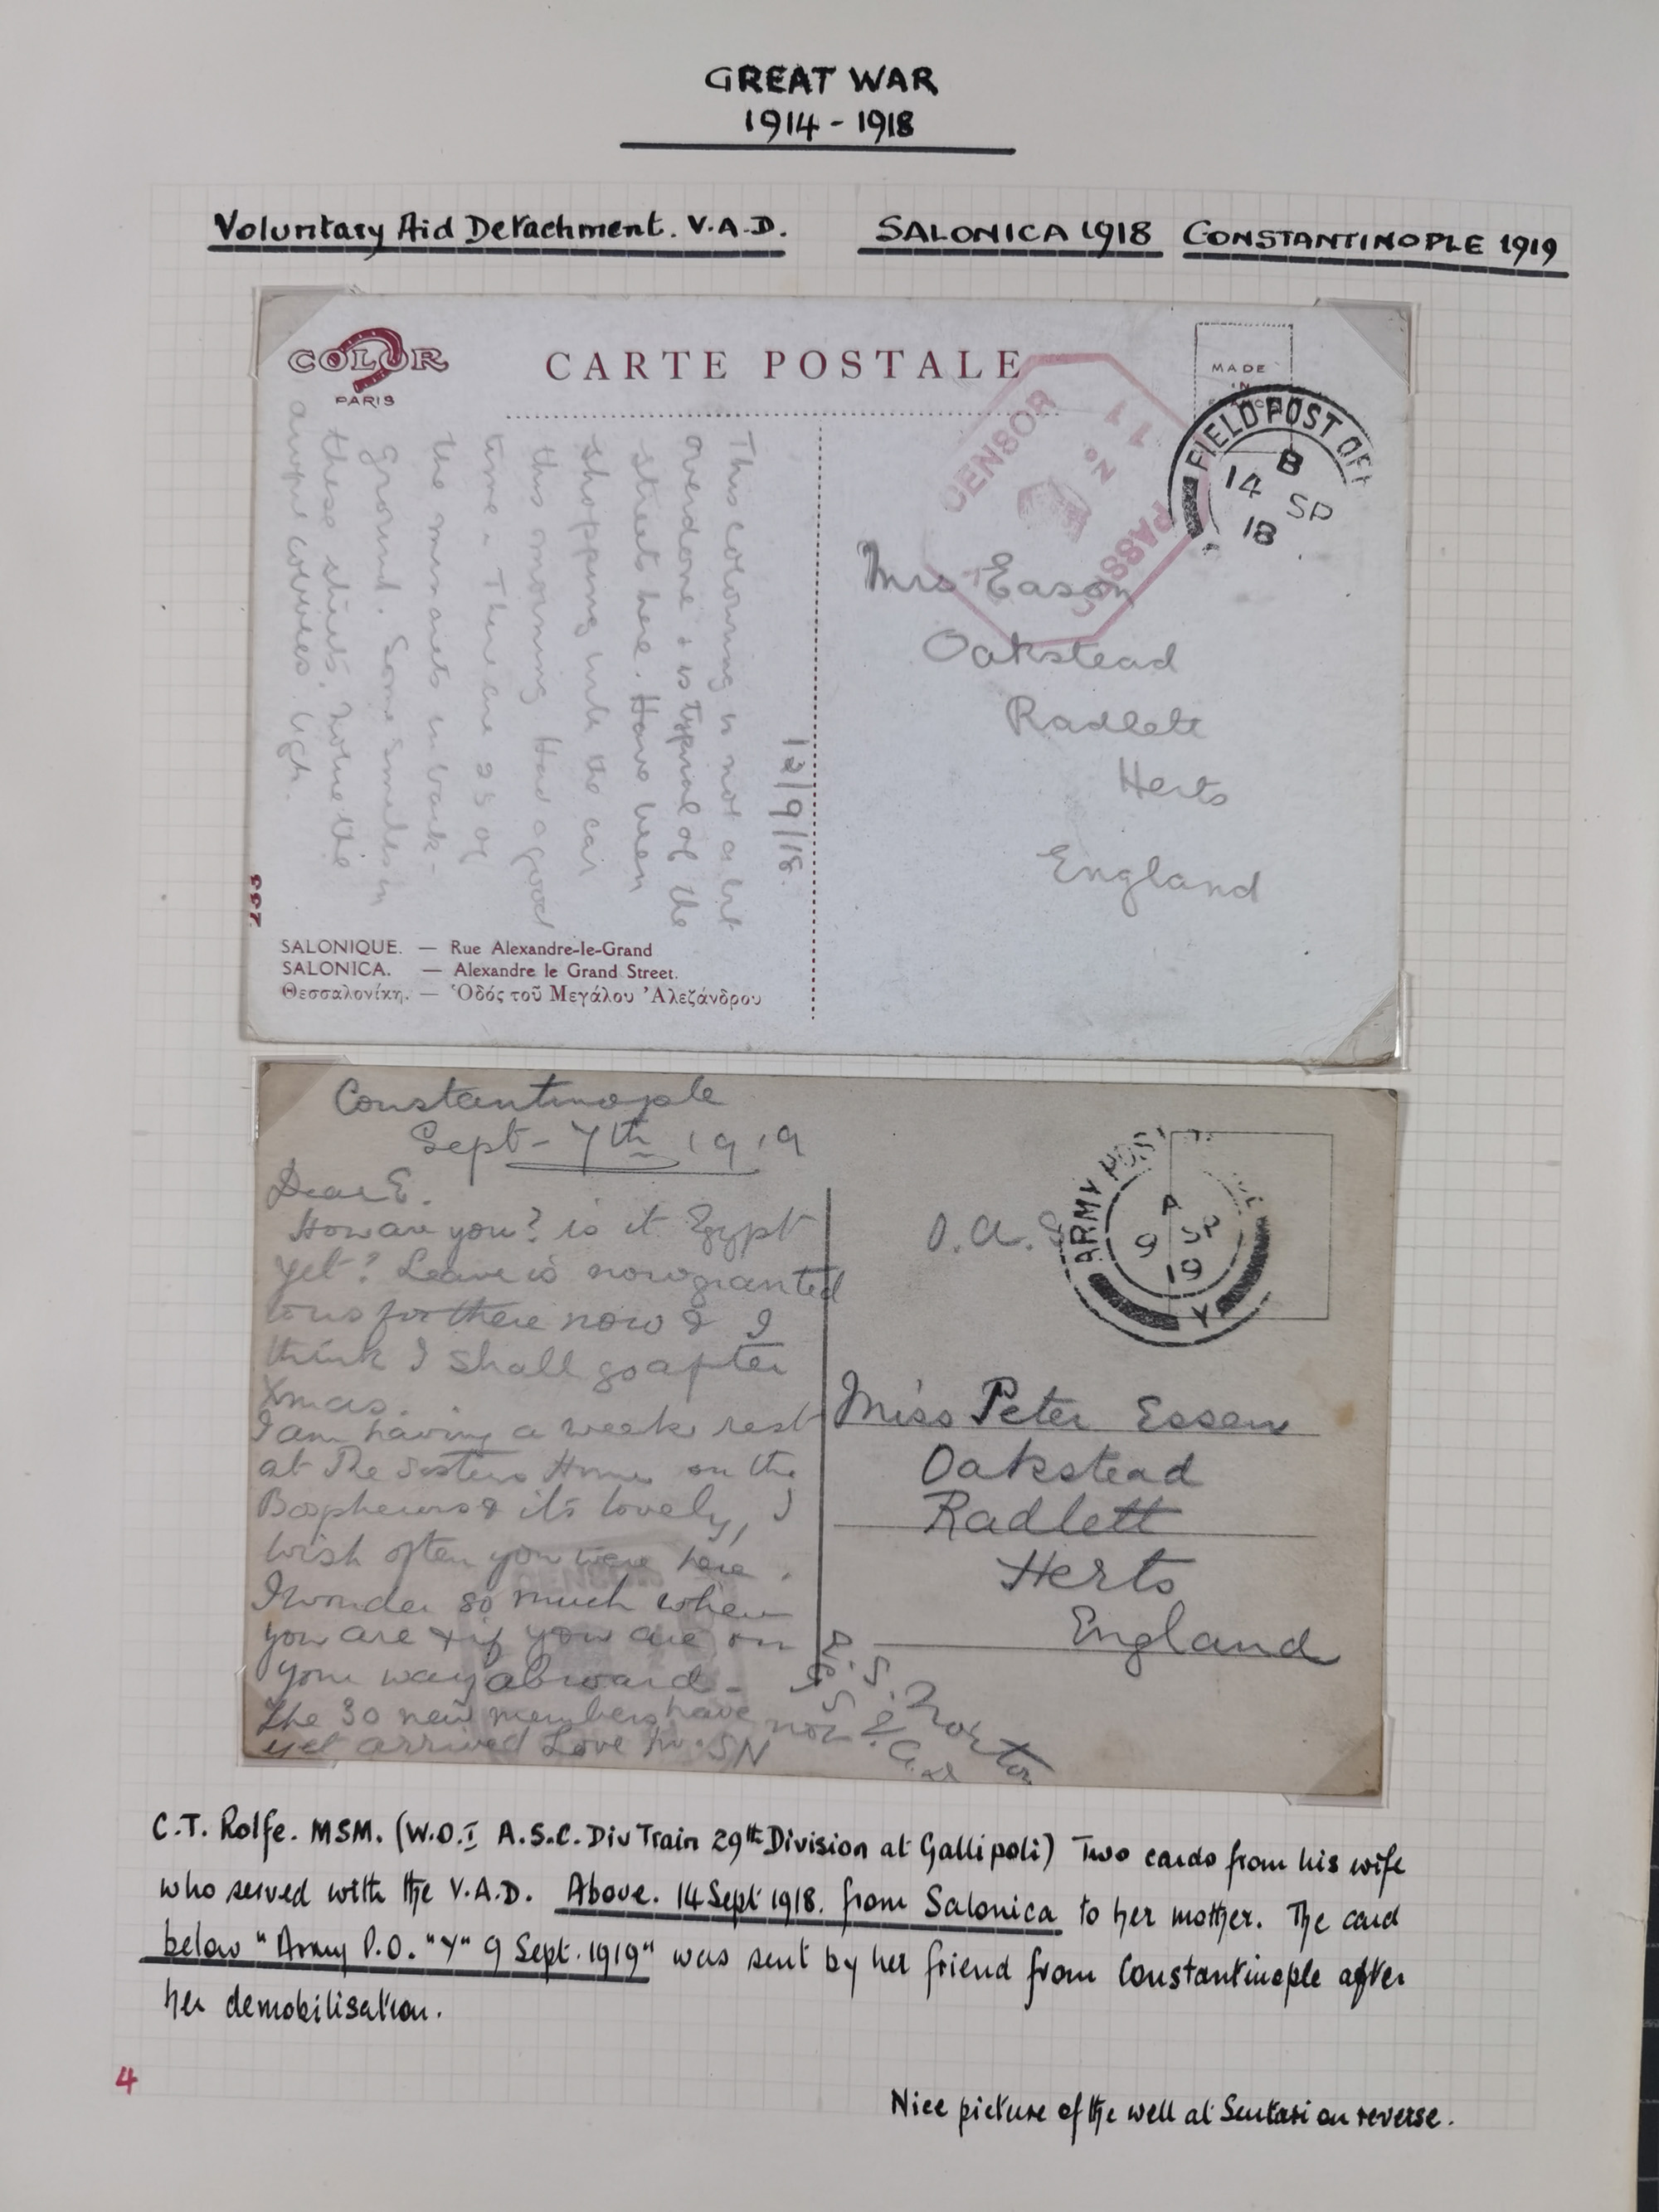 GREAT WAR
1914 - 1918
Voluntary Aid Detachment. V.A.D. SALONICA 1918 CONSTANTINOPLE 1919
COLOR
PARIS
CARTE POSTALE
MADE
IN
CENSOR
PASSED
No
FIELD POST OF
B
14 SP
18
12/9/18.
This colouring is not a bit
overdone & is typical of the
streets here. Have been
shopping with the car
this morning. Had a good
time. There are 25 of
the minarets in back-
ground. Some smells in
these streets. Notice the
Mrs Eason
Oakstead
Radlett
Herts
England
233
SALONIQUE. — Rue Alexandre-le-Grand
SALONICA. — Alexandre le Grand Street.
Θεσσαλονίκη. — Ὁδός τοῦ Μεγάλου Ἀλεξάνδρου
Constantinople
Sept- 7th 1919
Dear E.
How are you? is it Egypt
yet? Leave is now granted
to us for there now & I
think I shall go after
Xmas.
I am having a weeks rest
at The Sisters Home on the
Bospherus & its lovely, I
wish often you were here.
I wonder so much where
you are & if you are on
your way abroad-
The 30 new members have not
yet arrived Love fr. SN
O.A.S
ARMY POST
A
9 SP
19
Y
Miss Peter Essen
Oakstead
Radlett
Herts
England
C.T. Rolfe. MSM. (W.O.I A.S.C. Div Train 29th Division at Gallipoli) Two cards from his wife
who served with the V.A.D. Above. 14 Sept 1918. from Salonica to her mother. The card
below "Army P.O. "Y" 9 Sept. 1919" was sent by her friend from Constantinople after
her demobilisation.
4
Nice picture of the well at Scutari on reverse.